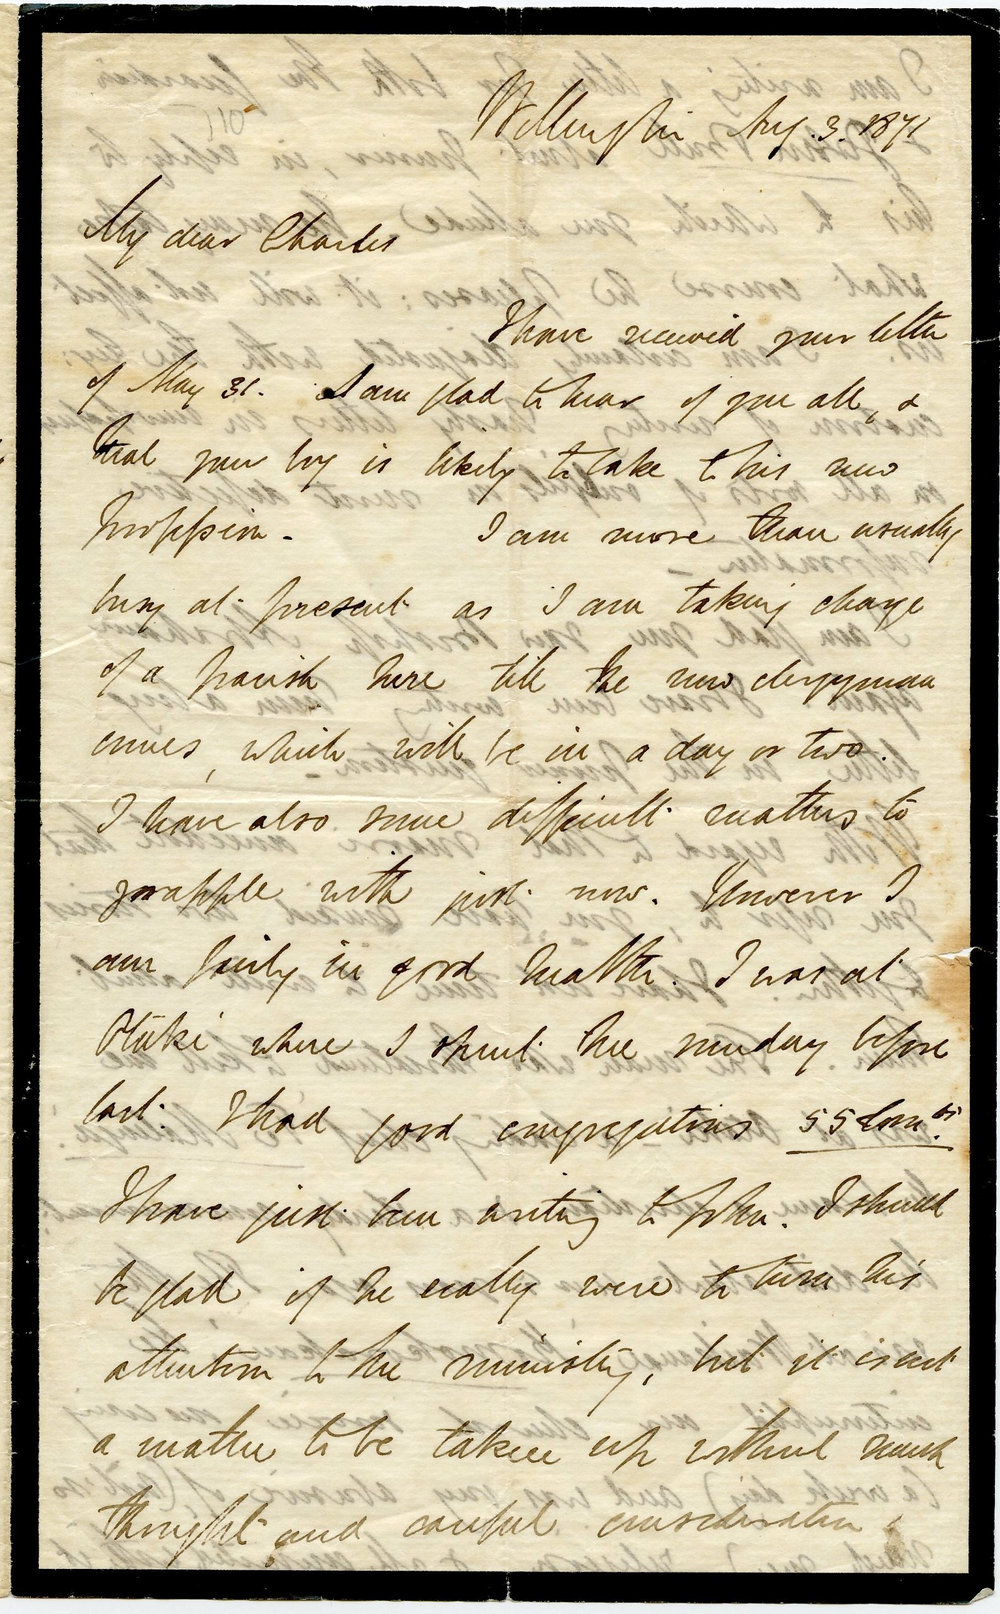 110
Wellington Aug. 3. 1871
My dear Charles
I have received your letter
of May 31. I am glad to hear of you all, &
that your boy is likely to take to his new
profession. I am more than usually
busy at present as I am taking charge
of a parish here till the new clergyman
comes, which will be in a day or two.
I have also some difficult matters to
grapple with just now. However I
am fairly in good health. I was at
Otaki where I spent the sunday before
last. I had good congregations 55 Comts.
I have just been writing to John. I should
be glad if he really were to turn his
attention to the ministry, but it is not
a matter to be taken up without much
thought and careful consideration.